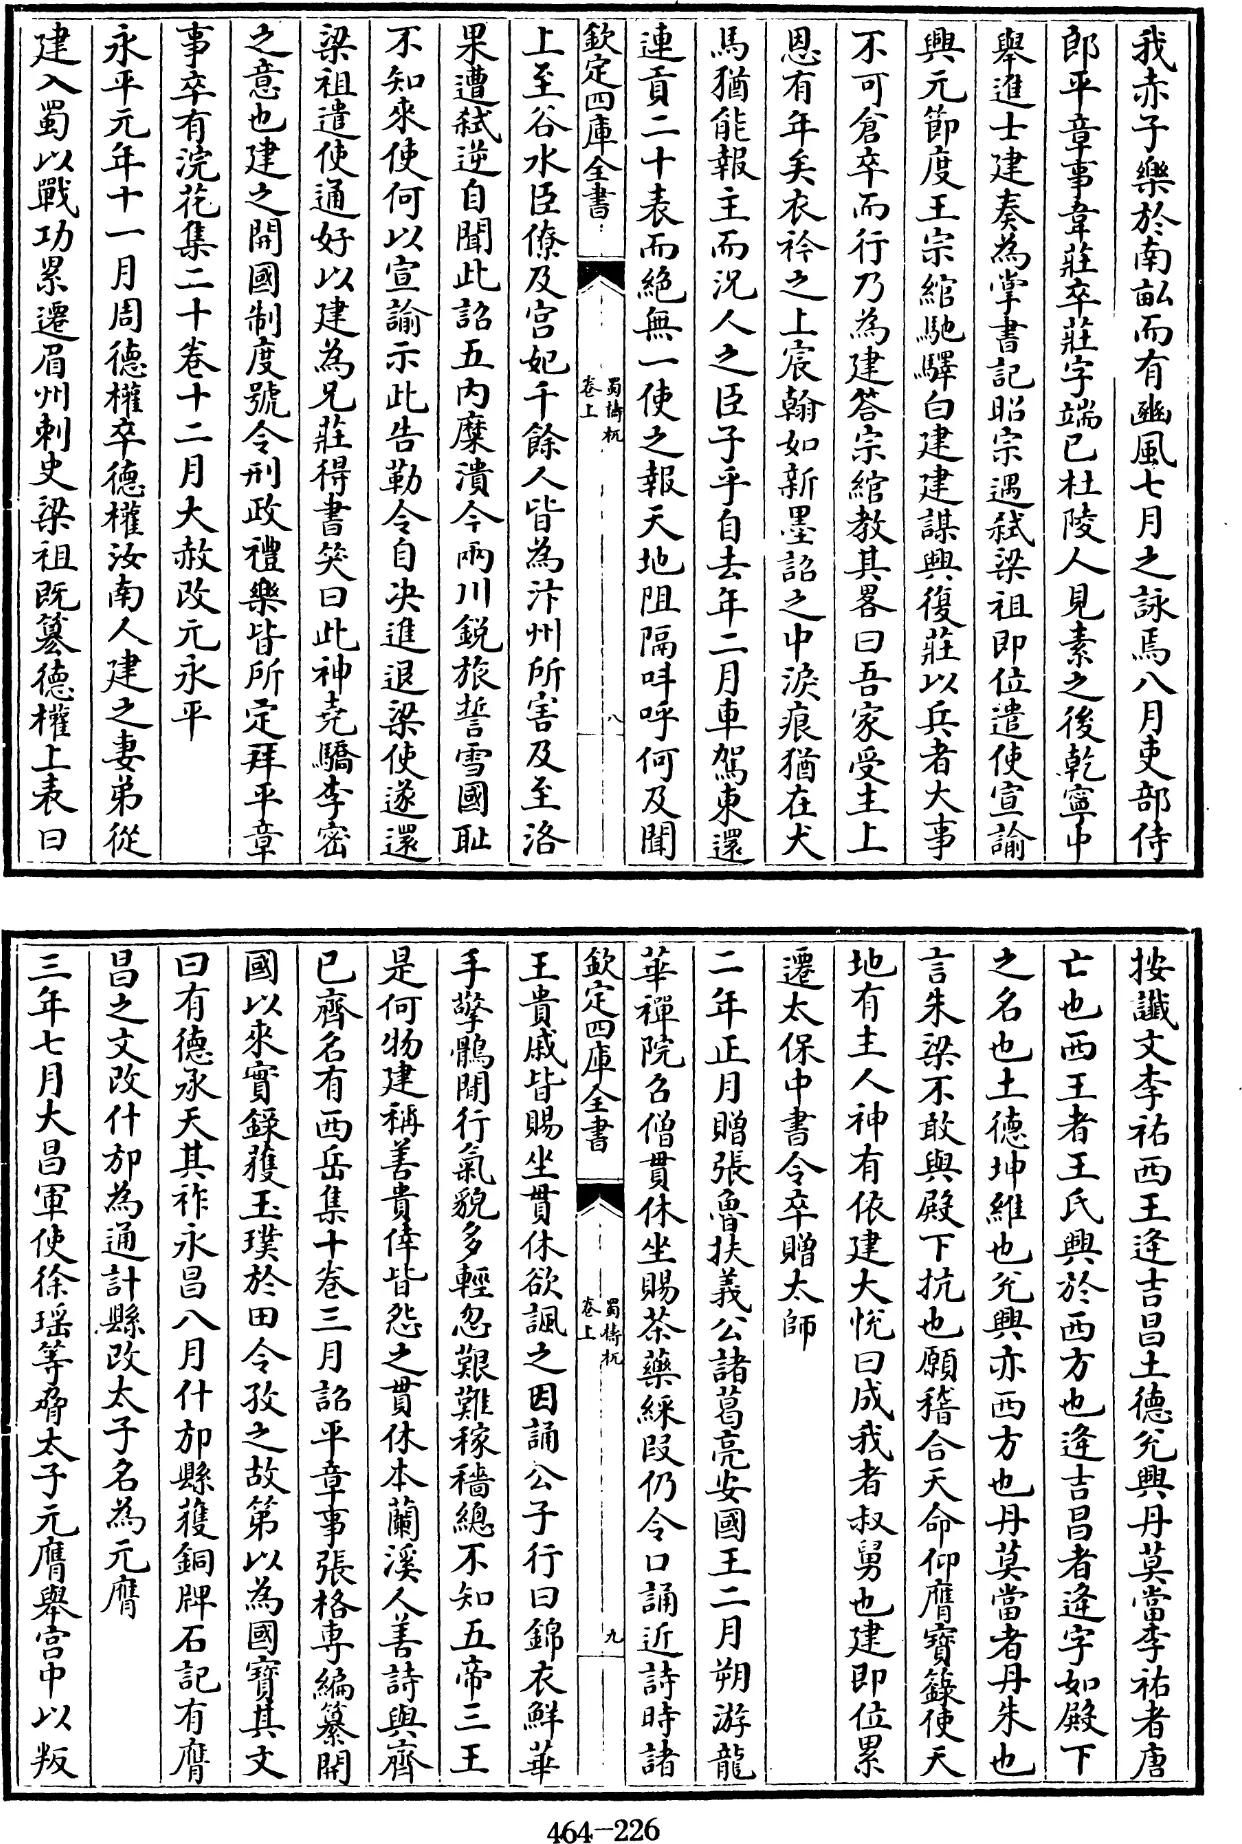 我赤子樂於南畝而有豳風七月之詠焉八月吏部侍
郎平章事韋莊卒莊字端已杜陵人見素之後乾寧中
舉進士建奏為掌書記昭宗遇弑梁祖即位遣使宣諭
興元節度王宗綰馳驛白建建謀興復莊以兵者大事
不可倉卒而行乃為建答宗綰教其畧曰吾家受主上
恩有年矣衣衿之上宸翰如新墨詔之中淚痕猶在犬
馬猶能報主而況人之臣子乎自去年二月車駕東還
連貢二十表而絕無一使之報天地阻隔呌呼何及聞
欽定四庫全書
蜀檮杌
卷上
八
上至谷水臣僚及宮妃千餘人皆為汴州所害及至洛
果遭弑逆自聞此詔五內糜潰今兩川銳旅誓雪國耻
不知來使何以宣諭示此告勒令自决進退梁使遂還
梁祖遣使通好以建為兄莊得書笑曰此神堯驕李密
之意也建之開國制度號令刑政禮樂皆所定拜平章
事卒有浣花集二十卷十二月大赦改元永平
永平元年十一月周德權卒德權汝南人建之妻弟從
建入蜀以戰功累遷眉州刺史梁祖既簒德權上表曰
按讖文李祐西王逄吉昌土德兊興丹莫當李祐者唐
亡也西王者王氏興於西方也逄吉昌者逄字如殿下
之名也土德坤維也兊興亦西方也丹莫當者丹朱也
言朱梁不敢與殿下抗也願稽合天命仰膺寶籙使天
地有主人神有依建大悅曰成我者叔舅也建即位累
遷太保中書令卒贈太師
二年正月贈張魯扶義公諸葛亮安國王二月朔游龍
華禪院召僧貫休坐賜茶藥綵段仍令口誦近詩時諸
欽定四庫全書
蜀檮杌
卷上
九
王貴戚皆賜坐貫休欲諷之因誦公子行曰錦衣鮮華
手擎鶻閒行氣貌多輕忽艱難稼穡總不知五帝三王
是何物建稱善貴倖皆怨之貫休本蘭溪人善詩與齊
已齊名有西岳集十卷三月詔平章事張格專編纂開
國以來實錄獲玉璞於田令孜之故第以為國寶其文
曰有德承天其祚永昌八月什邡縣獲銅牌石記有膺
昌之文改什邡為通計縣改太子名為元膺
三年七月大昌軍使徐瑶等脅太子元膺舉宮中以叛
464-226